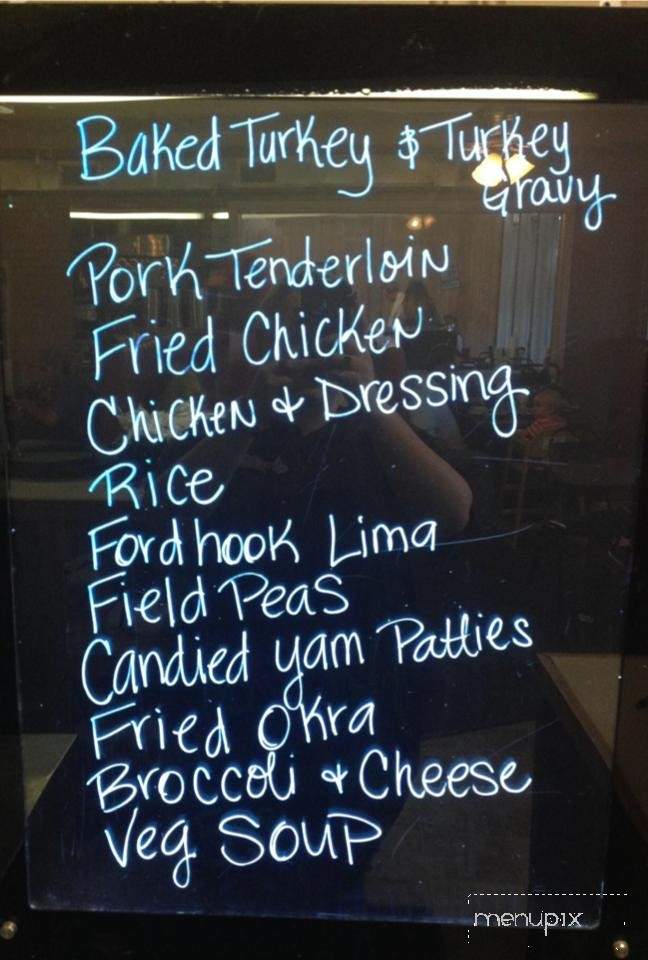 Baked Turkey & Turkey
Gravy
Pork Tenderloin
Fried Chicken
Chicken & Dressing
Rice
Fordhook Lima
Field Peas
Candied yam Patties
Fried Okra
Broccoli & Cheese
Veg Soup
menupix